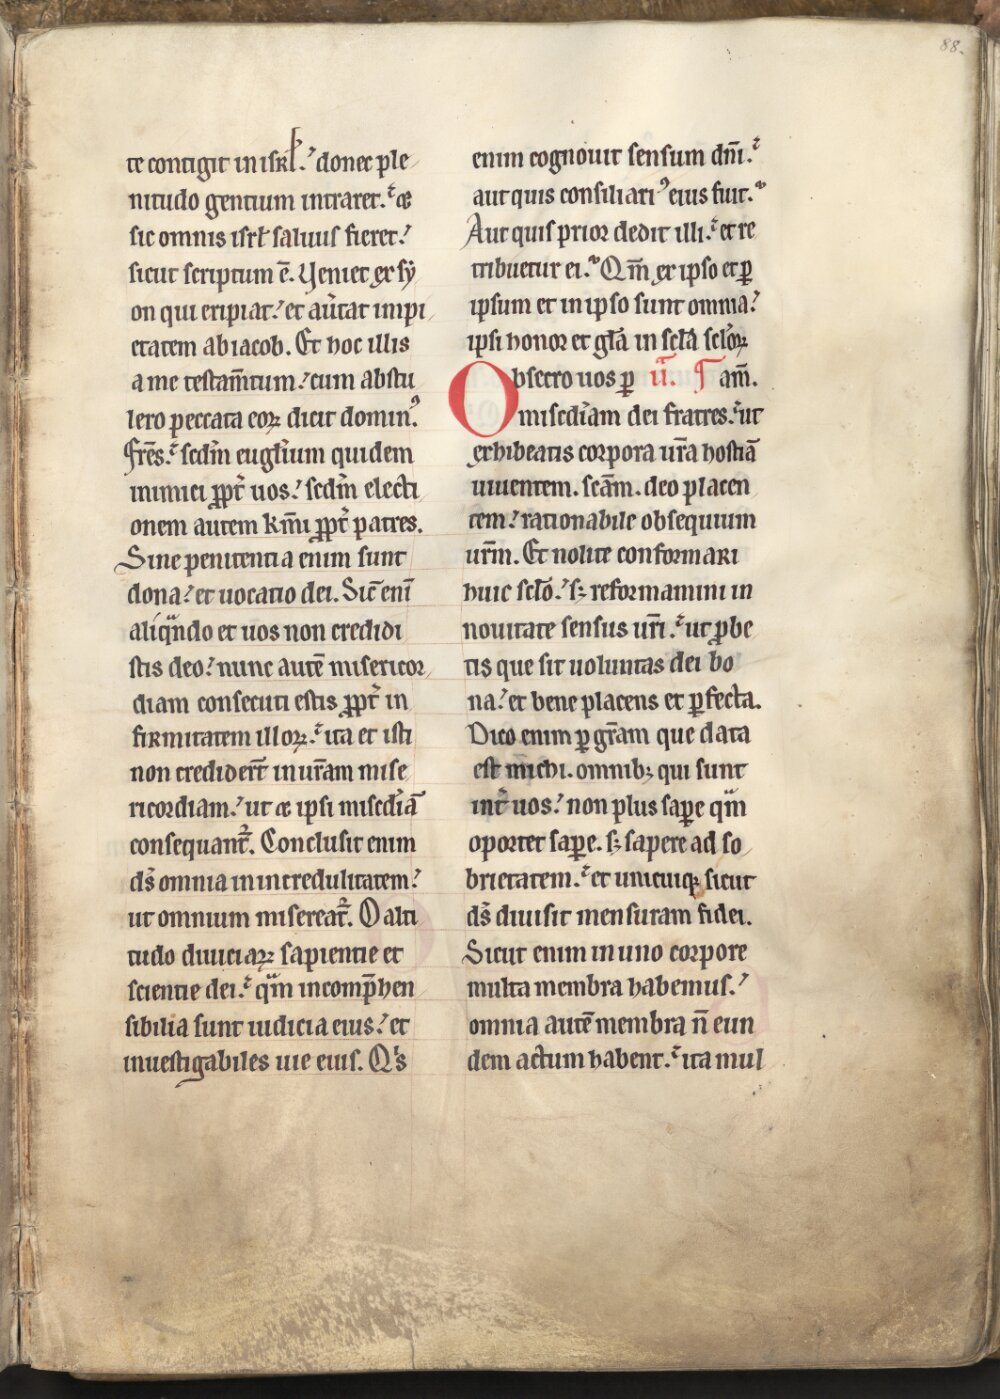 88.
te contigit in isrł. donec ple
nitudo gentium intraret. &
sic omnis isrł saluus fieret.
sicut scriptum ē. Ueniet ex sy
on qui eripiat. et au̅tat impi
etatem ab iacob. Et hoc illis
a me testam̅tum. cum abstu
lero peccata eoꝝ dicit dominꝰ.
Fr̅es. scd̅m eugl̅ium quidem
inimici ꝓpt̅ uos. scd̅m electi
onem autem kr̅mi ꝓpt̅ patres.
Sine penitentia enim sunt
dona. et uocatio dei. Sic̅ eni̅
aliqn̅do et uos non credidi
stis deo. nunc aute̅ misericor
diam consecuti estis ꝓpt̅ in
firmitatem illoꝝ. ita et isti
non credider̅t in ur̅am mise
ricordiam. ut & ipsi miscd̅ia̅
consequant̅. Conclusit enim
ds̅ omnia in incredulitatem.
ut omnium misereat̅. O alti
tudo diuiciaꝝ sapientie et
scientie dei. qm̅ incomp̅hen
sibilia sunt iudicia eius. et
inuestigabiles uie eius. Qͥs
enim cognouit sensum dn̅i.
aut quis consiliariꝰ eius fuit.
Aut quis prior dedit illi. et re
tribuetur ei. Qm̅ ex ipso et ꝑ
ipsum et in ipso sunt omnia.
ipsi honor et gl̅a in scl̅a scl̅oꝝ
Obsecro uos ꝑ u̅. ¶ am̅.
miscd̅iam dei fratres. ut
exhibeatis corpora ur̅a hostia̅
uiuentem. sc̅am. deo placen
tem. rationabile obsequium
ur̅m. Et nolite conformari
huic scl̅o. sꝫ reformamini in
nouitate sensus ur̅i. ut ꝓbe
tis que sit uoluntas dei bo
na. et bene placens et ꝑfecta.
Dico enim ꝑ gr̅am que data
est michi. omnibꝫ qui sunt
int̅ uos. non plus saꝑe qm̅
oportet saꝑe. sꝫ sapere ad so
brietatem. et unicuiqꝫ sicut
ds̅ diuisit mensuram fidei.
Sicut enim in uno corpore
multa membra habemus.
omnia aute̅ membra n̅ eun
dem actum habent. ita mul